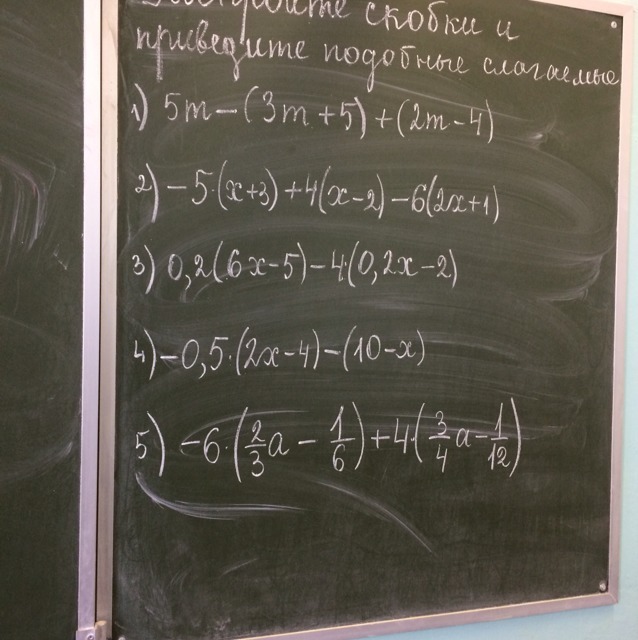 скобки и
приведите подобные слагаемые
1) 5m-(3m+5)+(2m-4)
2) -5·(x+3)+4(x-2)-6(2x+1)
3) 0,2(6x-5)-4·(0,2x-2)
4) -0,5·(2x-4)-(10-x)
5) -6·(2/3a-1/6)+4·(3/4a-1/12)